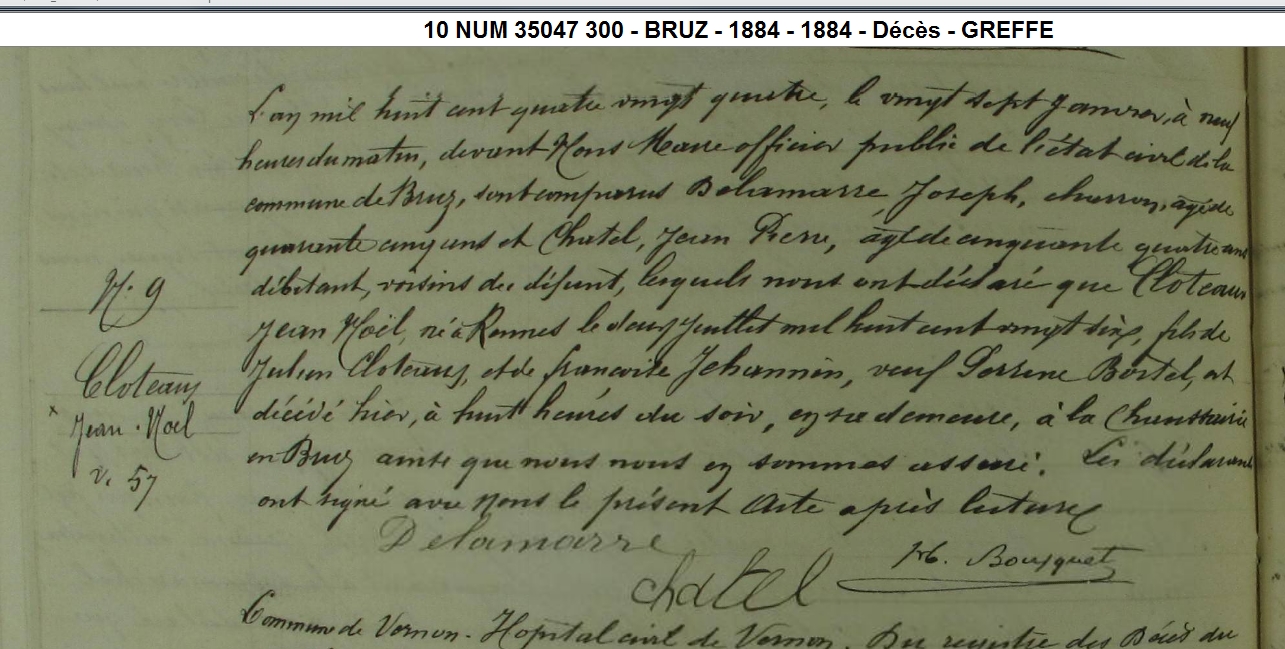 10 NUM 35047 300 - BRUZ - 1884 - 1884 - Décès - GREFFE
L'an mil huit cent quatre vingt quatre, le vingt sept Janvier, à neuf
heures du matin, devant Nous Maire officier public de l'état civil de la
commune de Bruz, sont comparus Delamarre, Joseph, charron, âgé de
quarante cinq ans et Chatel, Jean Pierre, âgé de cinquante quatre ans
débitant, voisins du défunt, lesquels nous ont déclaré que Cloteaux
Jean Noël, né à Rennes le deux Juillet mil huit cent vingt six, fils de
Julien Cloteaux, et de francoise Jehannin, veuf Perrine Bortel, est
décédé hier, à huit heures du soir, en sa demeure, à la Chaussairie
en Bruz ainsi que nous nous en sommes assuré. Les déclarants
ont signé avec Nous le présent Acte après lecture
N. 9
Cloteaux
Jean Noël
v. 57
Delamarre
Chatel
Bousquet
Commune de Vernon. Hopital civil de Vernon. Du registre des Décès du